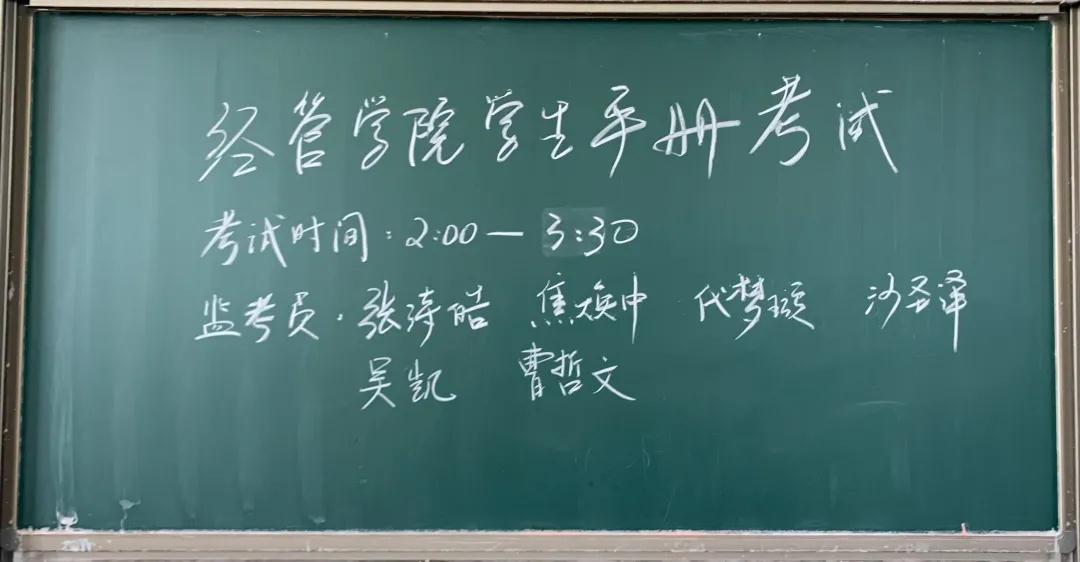 经管学院学生手册考试
考试时间:2:00—3:30
监考员·张涛皓 焦焕中 代梦璇 沙圣泽
吴凯 曹哲文